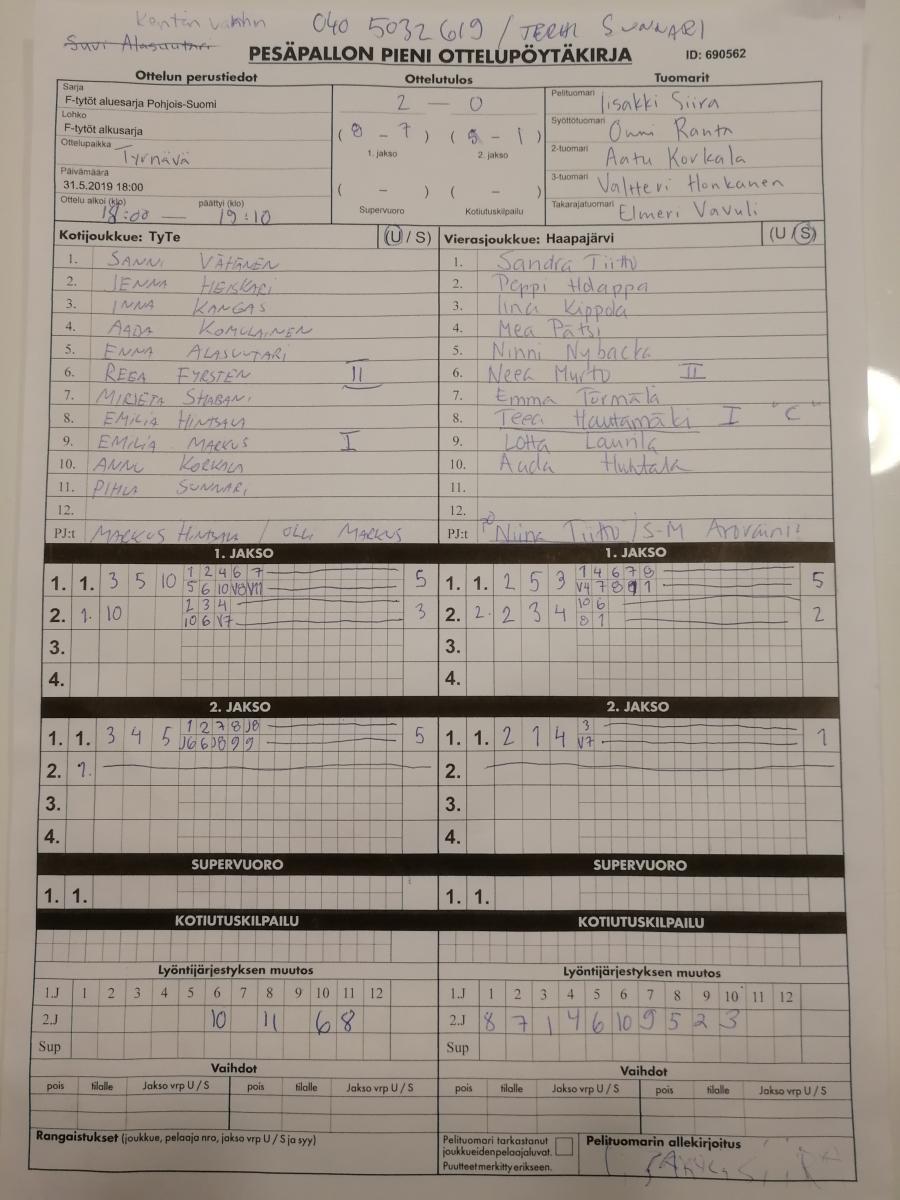 Kentän vanhin 040 5032619 / TERHI SUNNARI
Suvi Alasuutari
PESÄPALLON PIENI OTTELUPÖYTÄKIRJA ID: 690562
Ottelun perustiedot Ottelutulos Tuomarit
Sarja
F-tytöt aluesarja Pohjois-Suomi
Lohko
F-tytöt alkusarja
Ottelupaikka Tyrnävä
Päivämäärä
31.5.2019 18:00
Ottelu alkoi (klo) päättyi (klo)
18:00 — 19:10
2 — 0
( 8 - 7 ) ( 5 - 1 )
1. jakso 2. jakso
( - ) ( - )
Supervuoro Kotiutuskilpailu
Pelituomari Iisakki Siira
Syöttötuomari Onni Ranta
2-tuomari Aatu Korkala
3-tuomari Valtteri Honkanen
Takarajatuomari Elmeri Vavuli
Kotijoukkue: TyTe (U / S)
1. SANNI VÄHÄNEN
2. JENNA HEIKKARI
3. INNA KANGAS
4. AADA KOMULAINEN
5. ENNA ALASUUTARI
6. REEA FYRSTEN II
7. MIRJETA SHABANI
8. EMILIA HINTSALA
9. EMILIA MARKUS I
10. ANNU KORKALA
11. PIHLA SUNNARI
12.
PJ:t MARKUS HINTSALA / OLLI MARKUS
Vierasjoukkue: Haapajärvi (U / S)
1. Sandra Tiitto
2. Peppi Holappa
3. Iina Kippola
4. Mea Pätsi
5. Ninni Nybacka
6. Neea Murto II
7. Emma Törmälä
8. Teea Hautamäki I "C"
9. Lotta Laurila
10. Aada Huhtala
11.
12.
PJ:t Niina Tiitto / S-M
1. JAKSO
1. 1. 3 5 10 1 2 4 6 7 5
5 6 10 V8 V11
2. 1. 10 2 3 4 3
10 6 V7
3.
4.
1. JAKSO
1. 1. 2 5 3 1 4 6 7 8 5
V4 7 8 9 1
2. 2. 2 3 4 10 6 2
8 1
3.
4.
2. JAKSO
1. 1. 3 4 5 1 2 7 8 J8 5
J6 6 J8 9 9
2. 1.
3.
4.
2. JAKSO
1. 1. 2 1 4 3 1
V7
2.
3.
4.
SUPERVUORO SUPERVUORO
1. 1. 1. 1.
KOTIUTUSKILPAILU KOTIUTUSKILPAILU
Lyöntijärjestyksen muutos
1.J 1 2 3 4 5 6 7 8 9 10 11 12
2.J 10 11 6 8
Sup
Lyöntijärjestyksen muutos
1.J 1 2 3 4 5 6 7 8 9 10 11 12
2.J 8 7 1 4 6 10 9 5 2 3
Sup
Vaihdot Vaihdot
pois tilalle Jakso vrp U / S pois tilalle Jakso vrp U / S
pois tilalle Jakso vrp U / S pois tilalle Jakso vrp U / S
Rangaistukset (joukkue, pelaaja nro, jakso vrp U / S ja syy)
Pelituomari tarkastanut
joukkueidenpelaajaluvat.
Puutteet merkitty erikseen.
Pelituomarin allekirjoitus